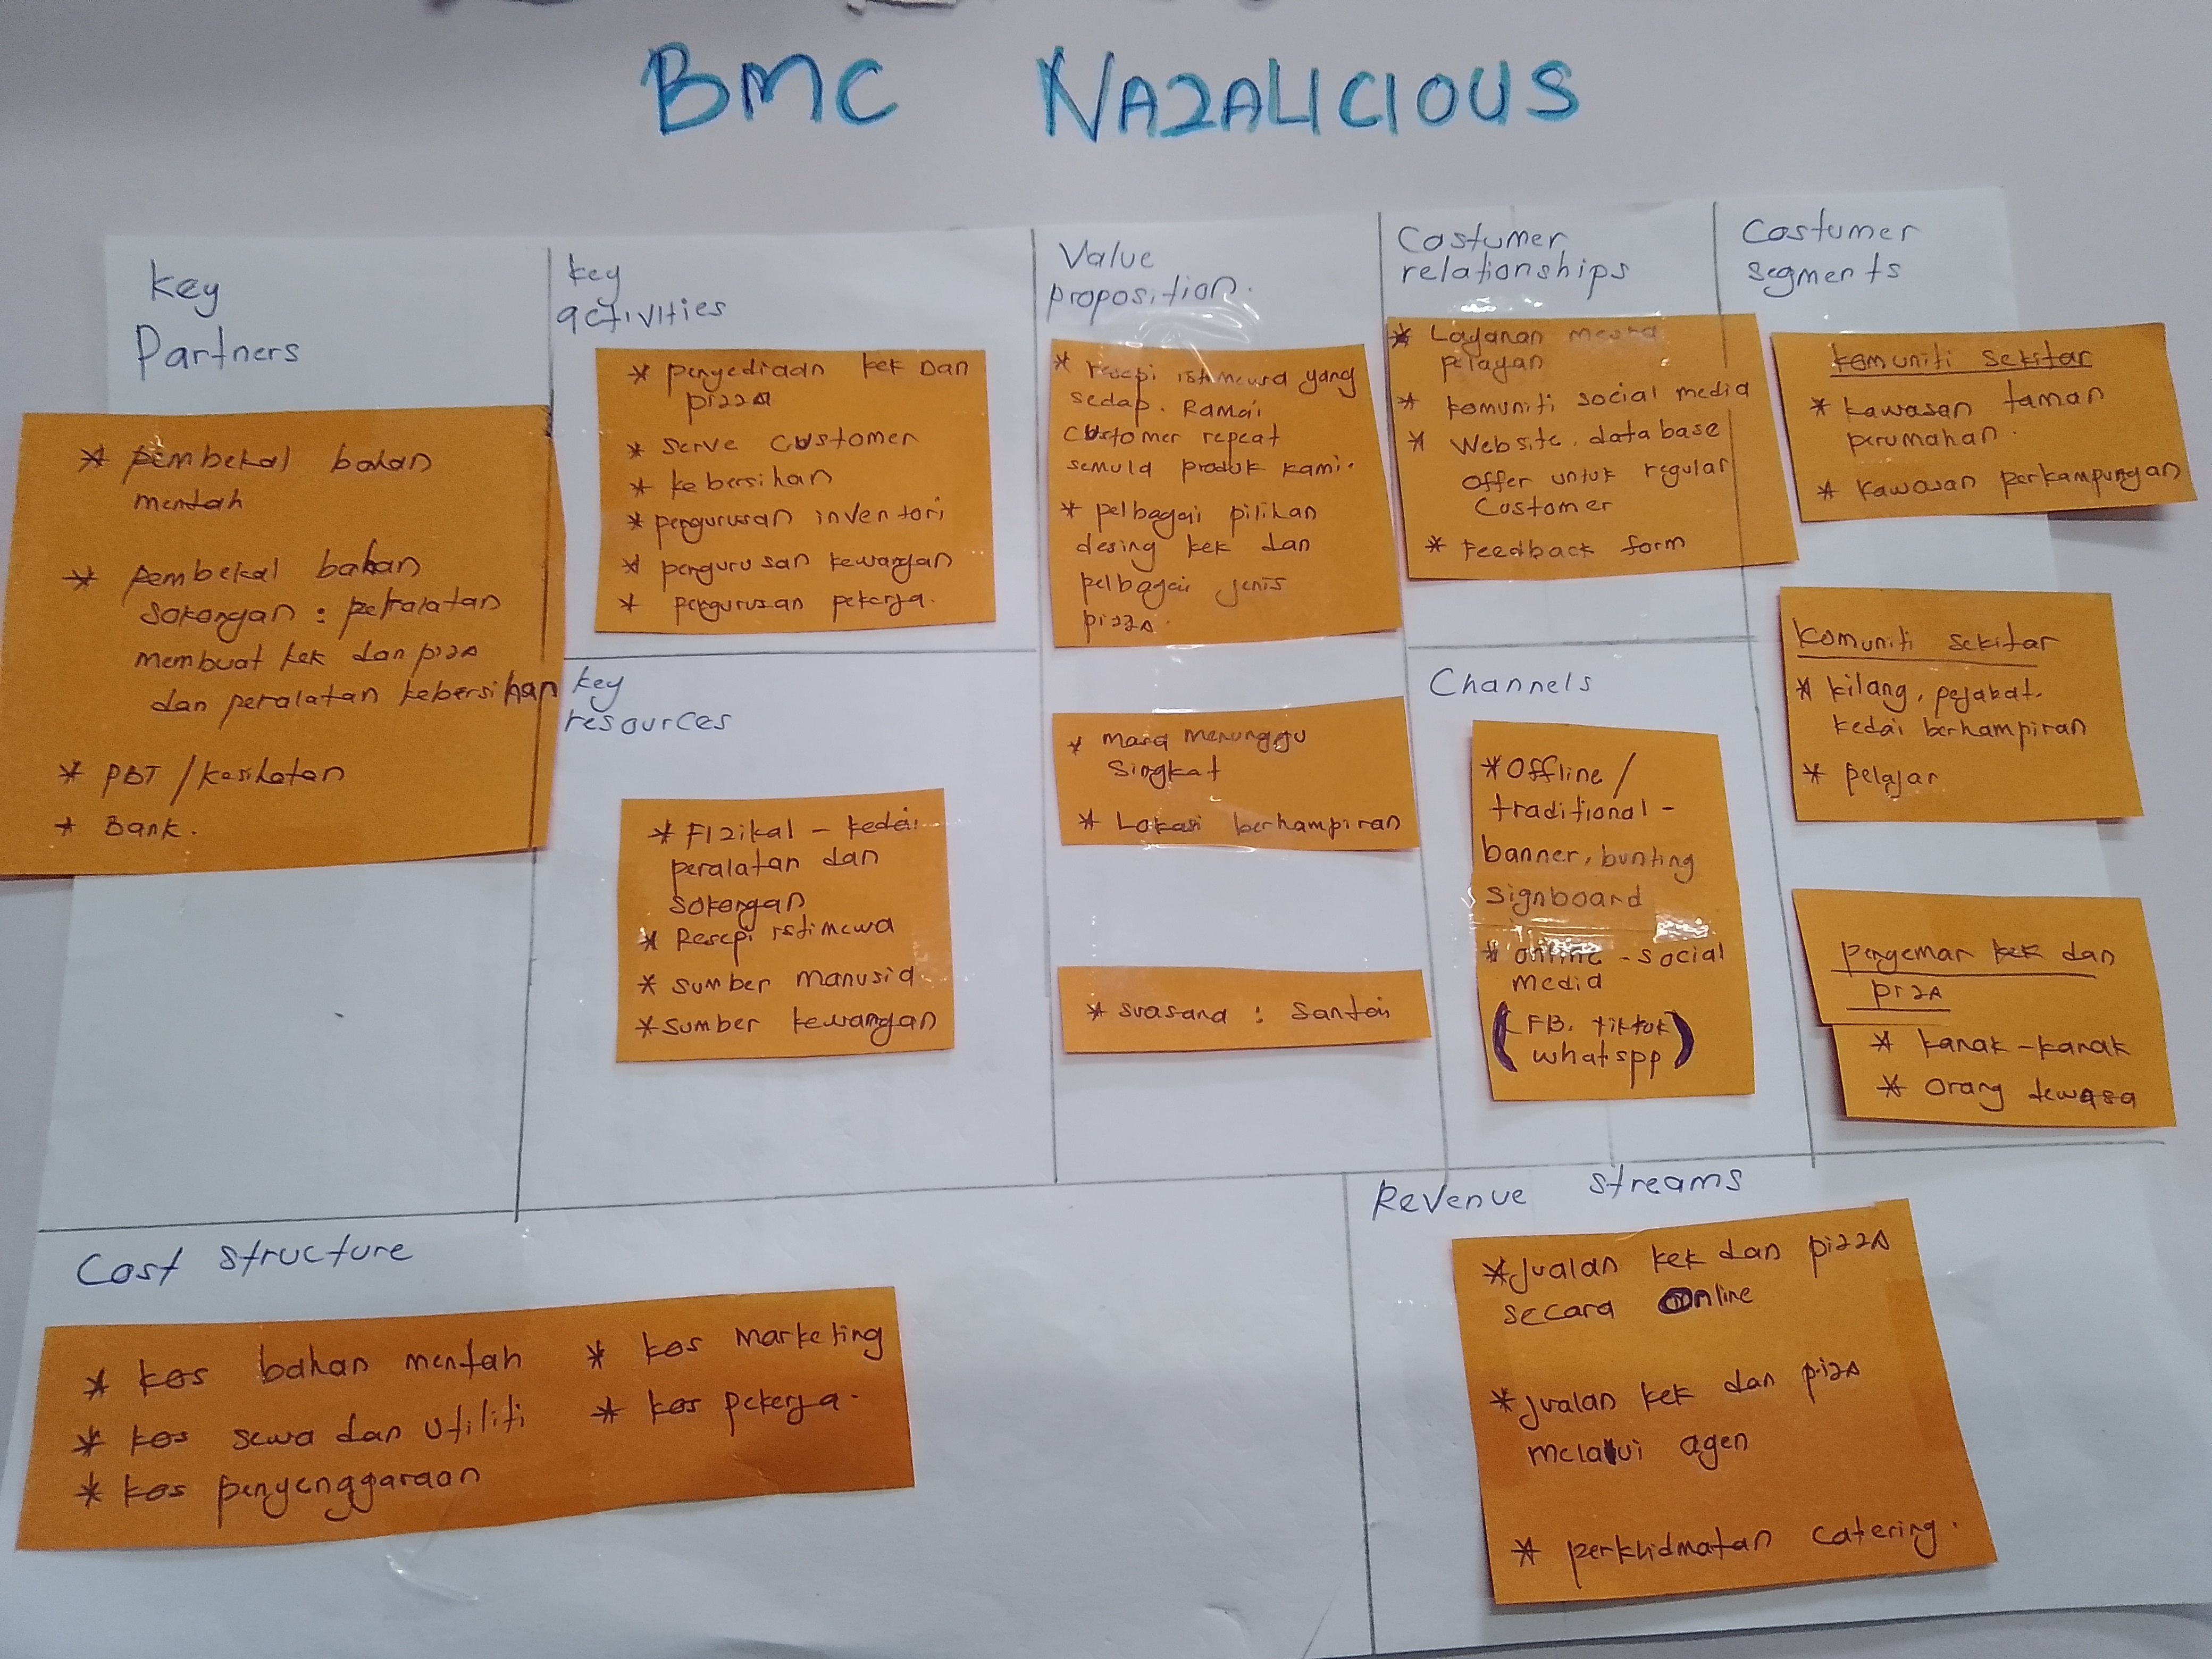 BMC NAZALICIOUS
Key
Partners
* pembekal bahan
mentah
* pembekal bahan
sokongan : peralatan
membuat kek dan pizA
dan peralatan kebersihan
* PBT / kesihatan
* Bank.
key
activities
* penyediaan kek Dan
pizzA
* serve customer
* kebersihan
* pengurusan inventori
* pengurusan kewangan
* pengurusan pekerja.
key
resources
* Fizikal - kedai
peralatan dan
sokongan
* Resepi istimewa
* sumber manusia
* sumber kewangan
Value
proposition.
* resepi istimewa yang
sedap. Ramai
customer repeat
semula produk kami.
* pelbagai pilihan
desing kek dan
pelbagai jenis
pizzA.
* masa menunggu
singkat
* Lokasi berhampiran
* suasana : santai
Costumer
relationships
* Layanan mesra
pelayan
* komuniti social media
* Website, database
offer untuk regular
Customer
* Feedback form
Channels
* Offline /
traditional -
banner, bunting
signboard
* online - social
media
(FB, tiktok
whatspp)
Costumer
segments
komuniti sekitar
* kawasan taman
perumahan.
* kawasan perkampungan
komuniti sekitar
* kilang, pejabat,
kedai berhampiran
* pelajar
pengemar kek dan
pizA
* kanak-kanak
* orang dewasa
Cost structure
* kos bahan mentah
* kos sewa dan utiliti
* kos penyenggaraan
* kos marketing
* kos pekerja.
Revenue streams
* Jualan kek dan pizzA
secara Online
* Jualan kek dan pizA
melalui agen
* perkhidmatan catering.